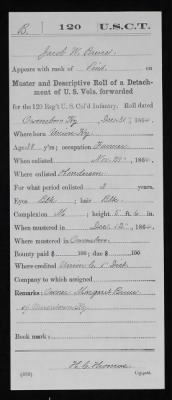 B. 120 U.S.C.T.
Jacob W. Bruce
Appears with rank of Priv. on
Muster and Descriptive Roll of a Detach-
ment of U. S. Vols. forwarded
for the 120 Reg't U. S. Col'd Infantry. Roll dated
Owensboro Ky Dec 31, 1864.
Where born Union Ky
Age 18 y'rs; occupation Farmer
When enlisted Nov 23, 1864.
Where enlisted Henderson
For what period enlisted 3 years.
Eyes Blk; hair Blk
Complexion Blk; height 5 ft. 6 in.
When mustered in Dec 12, 1864.
Where mustered in Owensboro
Bounty paid $ 100; due $ 100
Where credited Union Co 1" Dist.
Company to which assigned
Remarks: Owner Margaret Bruce
of Uniontown Ky
Book mark:
H. C. Copyist.